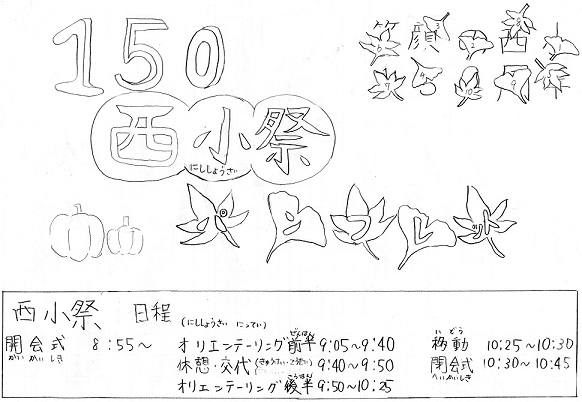 150
西小祭
にししょうさい
笑顔 西
パンフレット
西小祭 日程 (にししょうさい にってい)
開会式 8:55～
かいかいしき
ぜんはん
オリエンテーリング前半 9:05～9:40
休憩・交代(きゅうけい・こうたい) 9:40～9:50
こうはん
オリエンテーリング後半 9:50～10:25
いどう
移動 10:25～10:30
開会式 10:30～10:45
へいかいしき